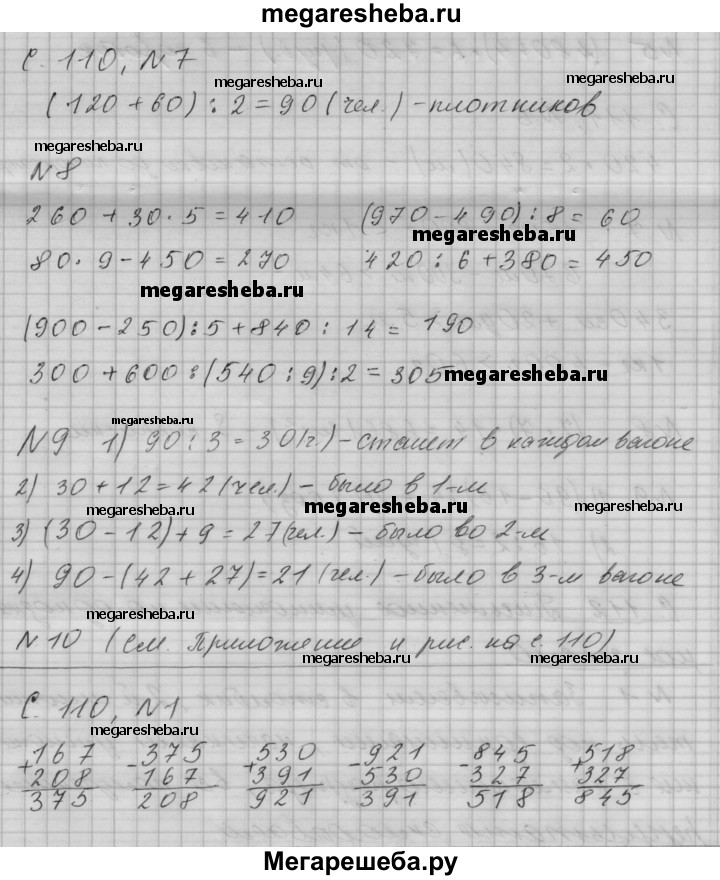 megaresheba.ru
с. 110, N 7
megaresheba.ru megaresheba.ru
(120 + 60) : 2 = 90 (чел.) - плотников
megaresheba.ru
N 8
260 + 30 · 5 = 410 (970 - 490) : 8 = 60
megaresheba.ru
80 · 9 - 450 = 270 420 : 6 + 380 = 450
megaresheba.ru
(900 - 250) : 5 + 840 : 14 = 190
300 + 600 : (540 : 9) : 2 = 305
megaresheba.ru
megaresheba.ru
N 9 1) 90 : 3 = 30 (ч.) - станет в каждом вагоне
2) 30 + 12 = 42 (чел.) - было в 1-м
megaresheba.ru megaresheba.ru megaresheba.ru
3) (30 - 12) + 9 = 27 (чел.) - было во 2-м
4) 90 - (42 + 27) = 21 (чел.) - было в 3-м вагоне
megaresheba.ru
N 10 (см. Приложение и рис. на с. 110)
megaresheba.ru megaresheba.ru
С. 110, N 1
megaresheba.ru
+167 -375 +530 -921 -845 +518
208 167 391 530 327 327
375 208 921 391 518 845
Мегарешеба.ру